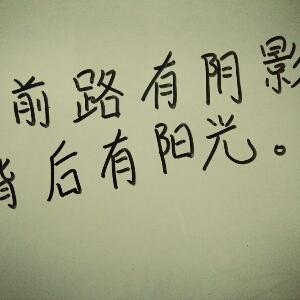 前路有阴影
背后有阳光。